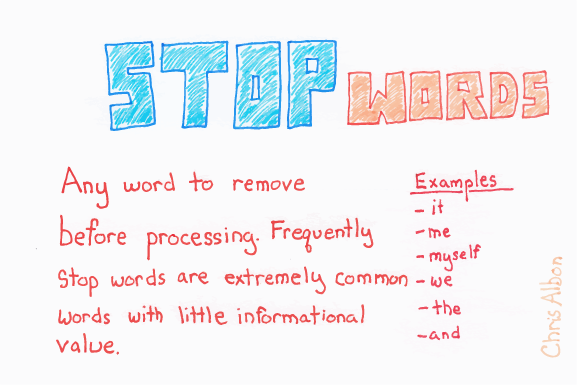 STOP WORDS
Any word to remove
before processing. Frequently
Stop words are extremely common
words with little informational
value.
Examples
- it
- me
- myself
- we
- the
- and
Chris Albon